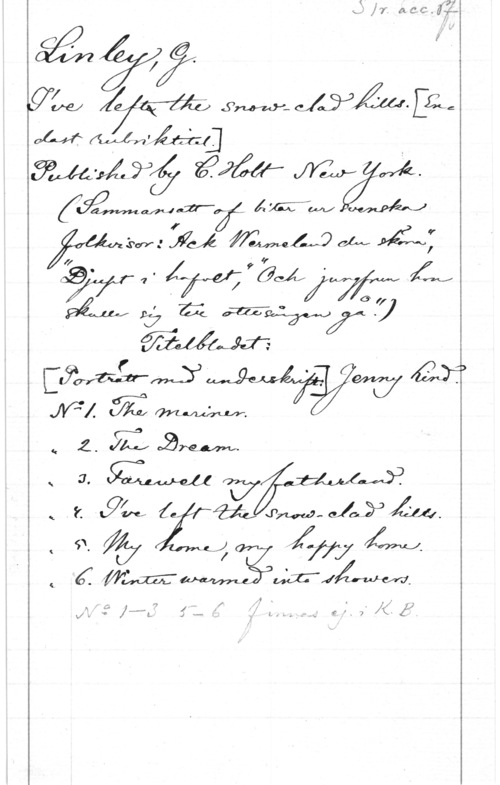 S/r. acc.
Linley, G.
I've left the snow-clad hills. [En-
dast rubriktitel.]
Published by C. Holt New York.
(Sammansatt af bitar ur svenska
folkvisor: "Ack Wermeland du sköna",
"Djupt i hafvet," "Och jungfrun hon
skulle sig till ottesången gå".)
Titelbladet:
[Porträtt med underskrift:] Jenny Lind.
No 1. The mariner.
" 2. The Dream.
" 3. Farewell my fatherland.
" 4. I've left the snow-clad hills.
" 5. My home, my happy home.
" 6. Winter warmed into showers.
No 1-3 5-6 finnas ej i K.B.